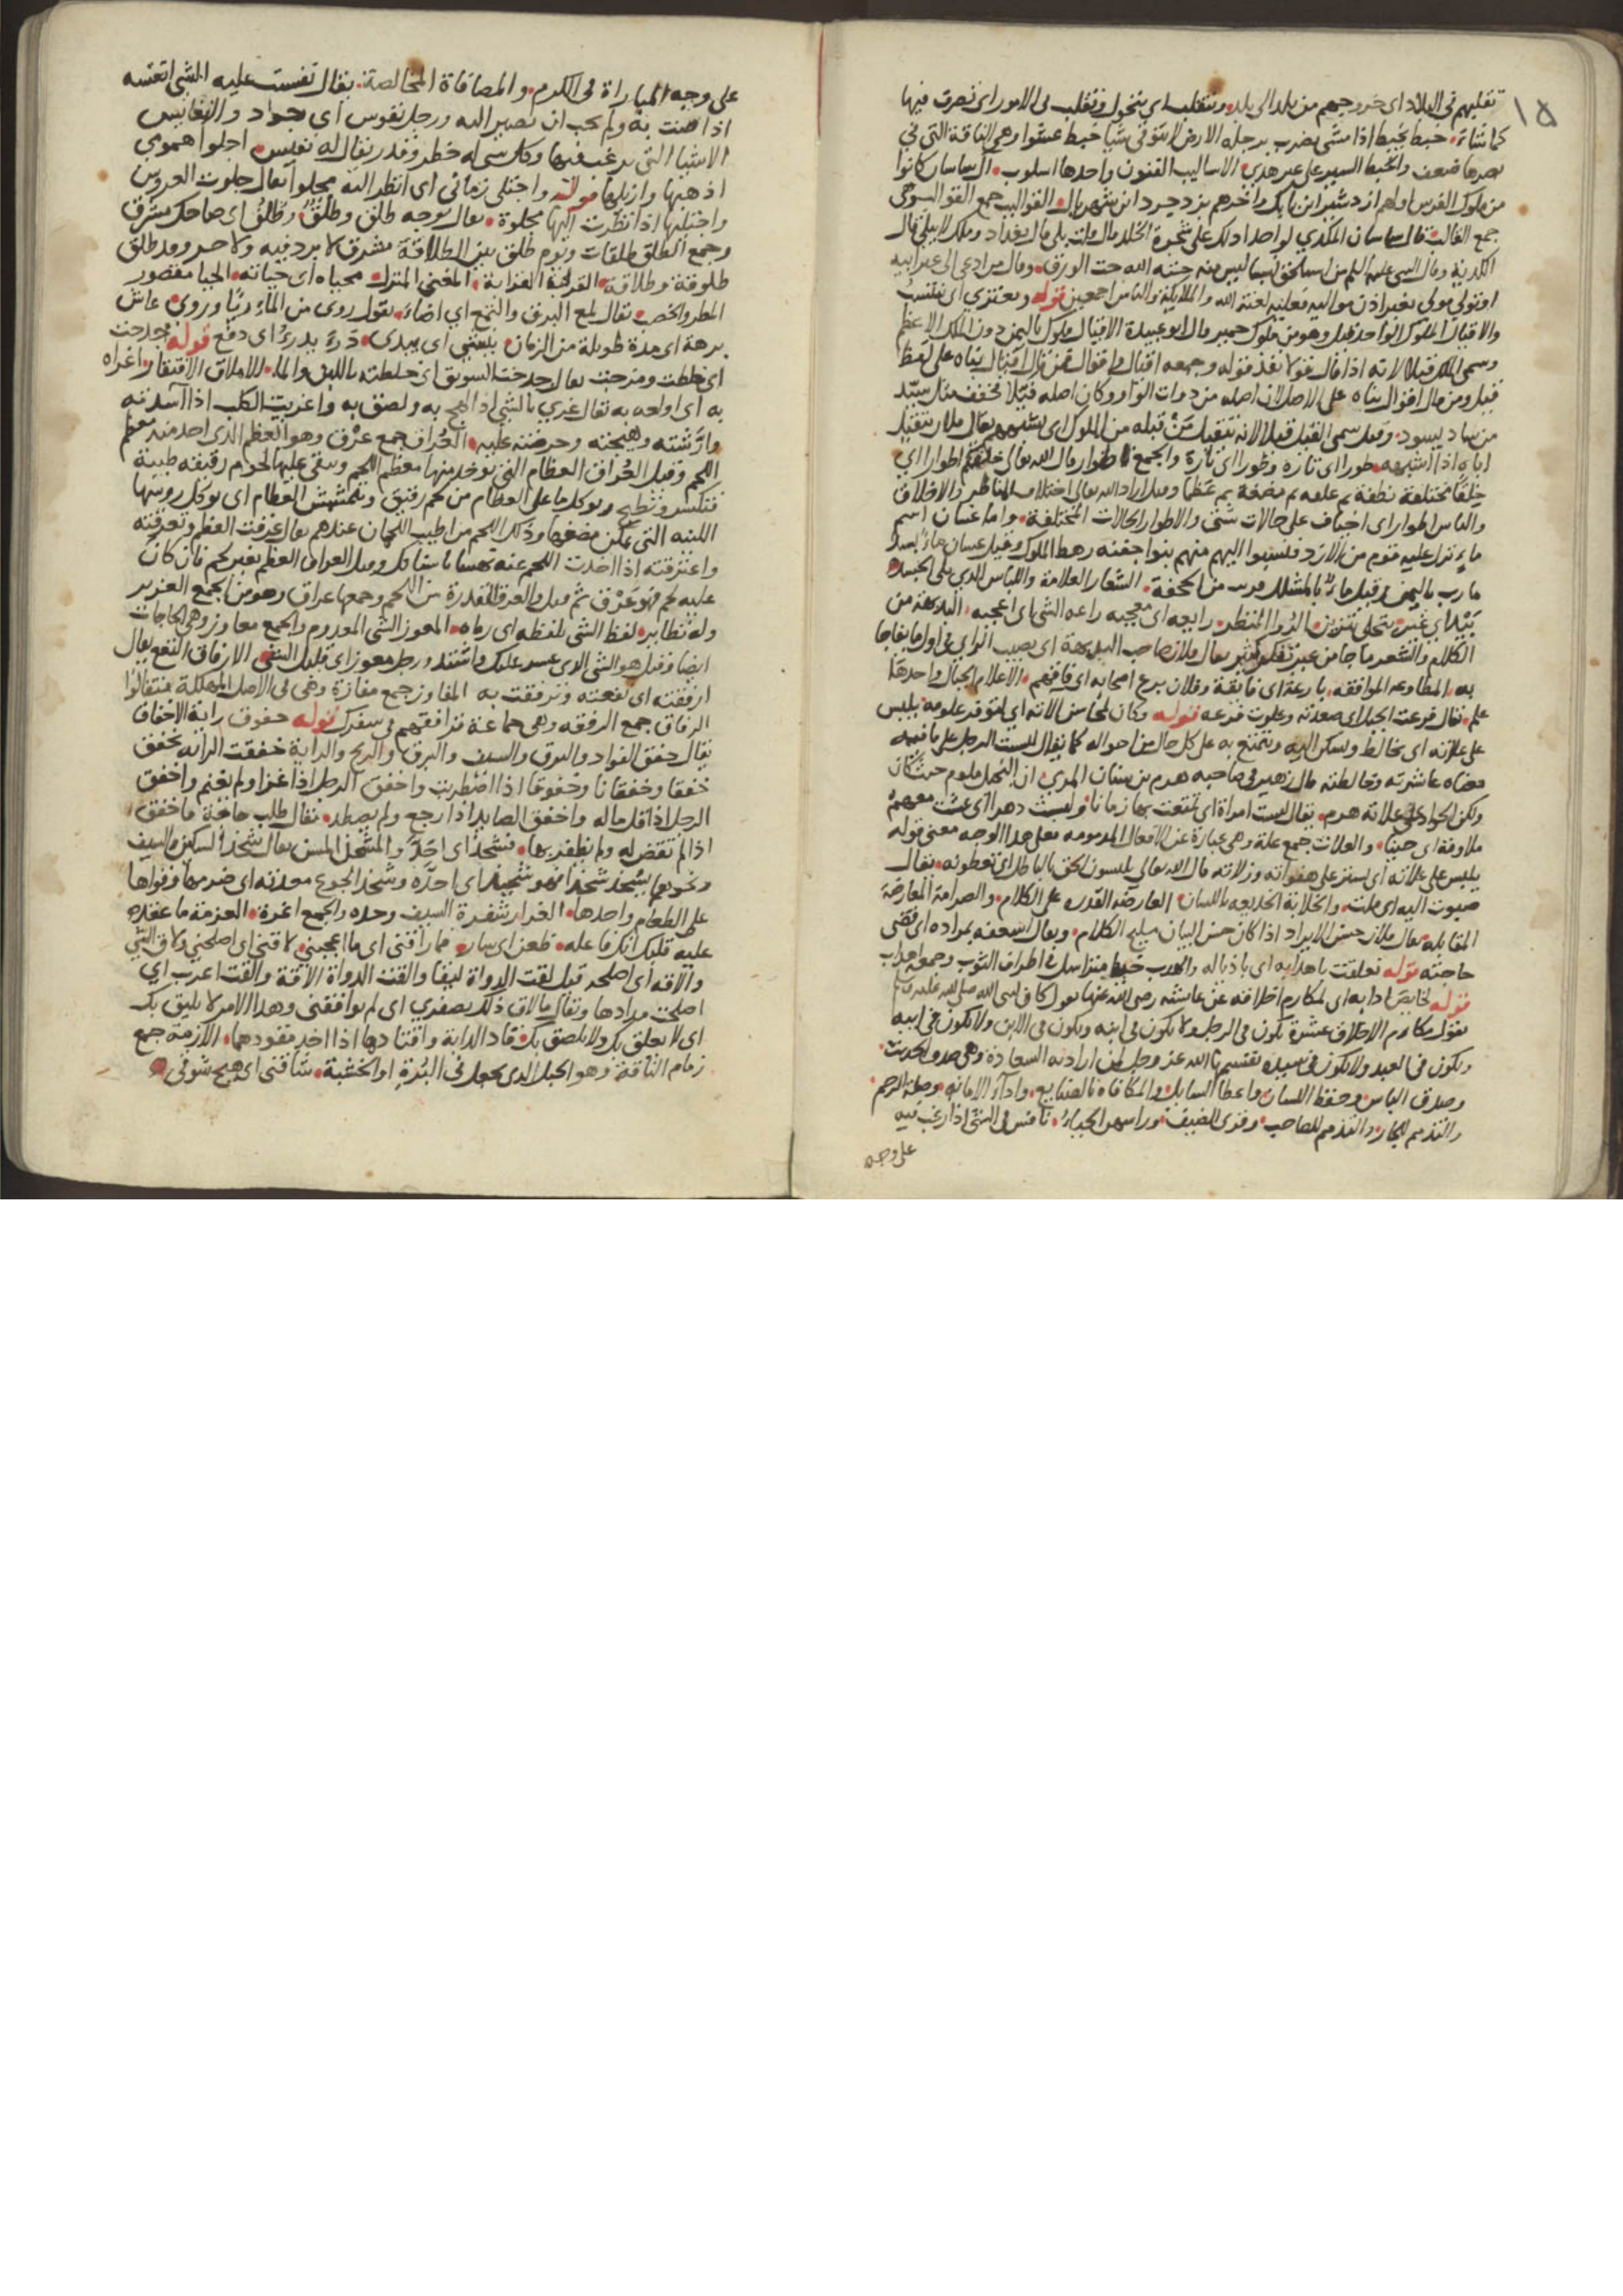 ١٥
تقلبهم في البلاد اي خروجهم من بلد الى بلد وتتقلب اي يتحول وتقلب في الامور اي تصرف فيها
كما شاء خبط يخبط اذا مشى يضرب برجله الارض لا يتوقى شيا خبط عشوا وهي الناقة التي في
بصرها ضعف والخبط السير على غير هدى الاساليب الفنون واحدها اسلوب ال ساسان كانوا
من ملوك الفرس اولهم ازدشير ابن بابك واخرهم يزدجرد ابن شهريار القواليب جمع
جمع القالب ساسان المكدي لو احد ادلك على شجرة الخلد وملك لا يبلى قال
الكدية وقال النبي عليه السلم من ليس منه حته الله حت الورق وقال من ادعى الى غير ابيه
او تولى مولى بغير اذن مواليه فعليه لعنة الله والملايكة والناس اجمعين قوله ويعتزي اي ينتسب
والاقيال الملوك الواحد قيل وهو من ملوك حمير قال ابو عبيدة الاقيال ملوك باليمن دون الملك الاعظم
وسمي الملك قيلا لانه اذا قال قولا نفذ قوله وجمعه اقيال واقوال فمن قال اقيال بناه على لفظ
قيل ومن قال اقوال بناه على الاصل لان اصله من ذوات الواو وكان اصله قيلا مخفف مثل سيد
من ساد يسود وقيل سمي القيل قيلا لانه يتقيل من قبله من الملوك اي يشبههم يقال فلان يتقيل
اباه اذا اشبهه طورا اي تارة وطورا اي تارة والجمع اطوار قال الله تعالى خلقكم اطوارا اي
خلقا مختلفة نطفة ثم علقه ثم مضغة ثم عظما وقيل اراد الله تعالى اختلاف المناظر والاخلاق
والناس اطوار اي اخياف على حالات شتى والاطوار الحالات المختلفة واما غسان اسم
ما نزل عليه قوم من الازد فنسبوا اليهم منهم بنوا جفنه رهط الملوك وقيل غسان ماء بسد
مارب باليمن وقيل ما بالمشلل قريب من الجحفة الشعار العلامة واللباس الذي يلي الجسد
الرواء المنظر رايعه اي معجبه راعه الشي اي اعجبه البديهة من
الكلام والشعر ما جا من غير تفكر يقال فلان صاحب البديهة اي يصيب الراي في اول ما يفاجا
به المطاوعه الموافقه بارعة اي فايقة وفلان برع اصحابه اي فاقهم الاعلام الجبال واحدها
علم يقال فرعت الجبل اي صعدته وعلوت فرعه قوله وكان لمحاسن الاته اي لتوفر علومه يلبس
على علاته اي يخالط ويسكن اليه ويتمتع به على كل حال من احواله كما يقال لبست الرجل على ما فيه
معناه عاشرته وخالطته قال زهير في صاحبه هرم بن سنان المري ان البخيل ملوم حيث كان
ولكن الجواد على علاته هرم يقال لبست امراة اي تمتعت بها زمانا ولبست دهرا اي عشت معهم
ملاوة اي حينا والعلات جمع علة وهي عبارة عن الافعال المذمومه فعلى هذا الوجه معنى قوله
يلبس على علاته اي يستر على هفواته وزلاته قال الله تعالى يلبسون الحق بالباطل اي يغطونه يقال
صبوت اليه اي ملت والخلابة الخديعه باللسان العارضه القدره على الكلام والصرامة المعارضة
المقابله يقال فلان حسن الايراد اذا كان حسن البيان مليح الكلام ويقال اسعفه بمراده اي قضى
حاجته قوله تعلقت باهدابه اي باذياله والهدب خيط يتراسل في اطراف الثوب وجمعه اهداب
قوله لخايص ادابه اي لمكارم اخلاقه عن عايشه رضي الله عنها يقول كان نبي الله صلى الله عليه وسلم
يقول مكارم الاخلاق عشرة تكون في الرجل ولا تكون في ابنه وتكون في الابن ولا تكون في ابيه
وتكون في العبد ولا تكون في سيده يقسمها الله عز وجل لمن اراد به السعادة وهي صدق الحديث
وصدق الباس وحفظ اللسان واعطا السايل والمكافاة بالصنايع واداء الامانه وصلة الرحم
والتذمم للجار والتذمم للصاحب وقرى الضيف وراسهن الحياء نافس في الشي اذا رغب فيه
على وجه
على وجه المباراة في الكرم والمصافاة المخالصة يقال نفست عليه الشي انفسه
اذا ضنت به ولم يحب ان يصير اليه ورجل نفوس اي جواد والنفايس
الاشيا التي يرغب فيها وكل شي له خطر وقدر يقال له نفيس اجلوا همومي
اذهبها وازيلها قوله واجتلي زماني اي انظر اليه مجلوا يقال جلوت العروس
واجتليتها اذا نظرت اليها مجلوة يقال وجه طلق وطلق وطلق اي ضاحك مشرق
وجمع الطلق طلقات ويوم طلق بين الطلاقة مشرق لا برد فيه ولا حر وقد طلق
طلوقة وطلاقة القرابة المغنى المنزل محياه اي حياته الحيا مقصور
المطر والخصب يقال لمع البرق والتمع اي اضاء يقول روى من الماء ريا وروى عاش
برهة اي مدة طويلة من الزمان ينشي اي يبدي درء يدرء اي دفع قوله مجدحت
اي خلطت ومزجت يقال جدحت السويق اي خلطته باللبن والماء الاملاق الافتقار اغراه
به اي اولعه به يقال غري بالشي اذا لهج به ولصق به واغريت الكلب اذا آسدته
وارشته وهيجته وحرضته عليه العراق جمع عرق وهو العظم الذي اخذ منه معظم
اللحم وقيل العراق العظام التي يوخذ منها معظم اللحم وبقي عليها لحوم رقيقه طيبة
فتكسر وتطبخ ويوكل ما على العظام من لحم رقيق ويتمشمش العظام اي يوكل روسها
اللينه التي يمكن مضغها وذلك اللحم من اطيب اللحمان عندهم يقال عرقت العظم وتعرقته
واعترقته اذا اخذت اللحم عنه نهسا باسنانك وقيل العراق العظم بغير لحم فان كان
عليه لحم فهو عرق وقيل العرق الفدرة من اللحم وجمعها عراق وهو من الجمع العزيز
وله نظاير لفظ الشي يلفظه اي رماه المعوز الشي المعدوم والجمع معاوز وهي الحاجات
ايضا وقيل هو الشي الذي عسر عليك واشتد ورجل معوز اي قليل الشي الارفاق النفع يقال
ارفقته اي نفعته وترفقت به المفاوز جمع مفازة وهي في الاصل المهلكة فتفالوا
الرفاق جمع الرفقه وهي جماعة ترافقهم في سفرك قوله خفوق راية الاخفاق
يقال خفق الفواد والبرق والسيف والبرق والريح والراية خفقت الراية تخفق
خفقا وخفقانا وخفوقا اذا اضطربت واخفق الرجل اذا غزا ولم يغنم واخفق
الرجل اذا قل ماله واخفق الصايد اذا رجع ولم يصطد يقال طلب حاجة فاخفق
اذا لم تقض له ولم يظفر بها فشحذ اي احد والمشحذ المسن يقال شحذ السكين والسيف
ونحوهما يشحذ شحذا فهو شحيذ اي احده وشحذ الجوع معدته اي ضرمها وقواها
على الطعام واحدها الغرار شفرة السيف وحده والجمع اغرة العزمة ما عقده
عليه قلبك انك فاعله ظعن اي سار فما راقني اي ما اعجبني لاقني اي اصلحني ولاق الشي
والاقه اي اصلحه قيل لقت الدواة ليقا والقت الدواة الاقة والقت اعرب اي
اصلحت مدادها ويقال ما لاق ذلك بصفري اي لم يوافقني وهذا الامر لا يليق بك
اي لا يعلق بك ولا يلصق بك قاد الدابة واقتادها اذا اخذ مقودها الازمة جمع
زمام الناقة وهو الحبل الذي يجعل في البرة او الخشبة شاقني اي هيج شوقي